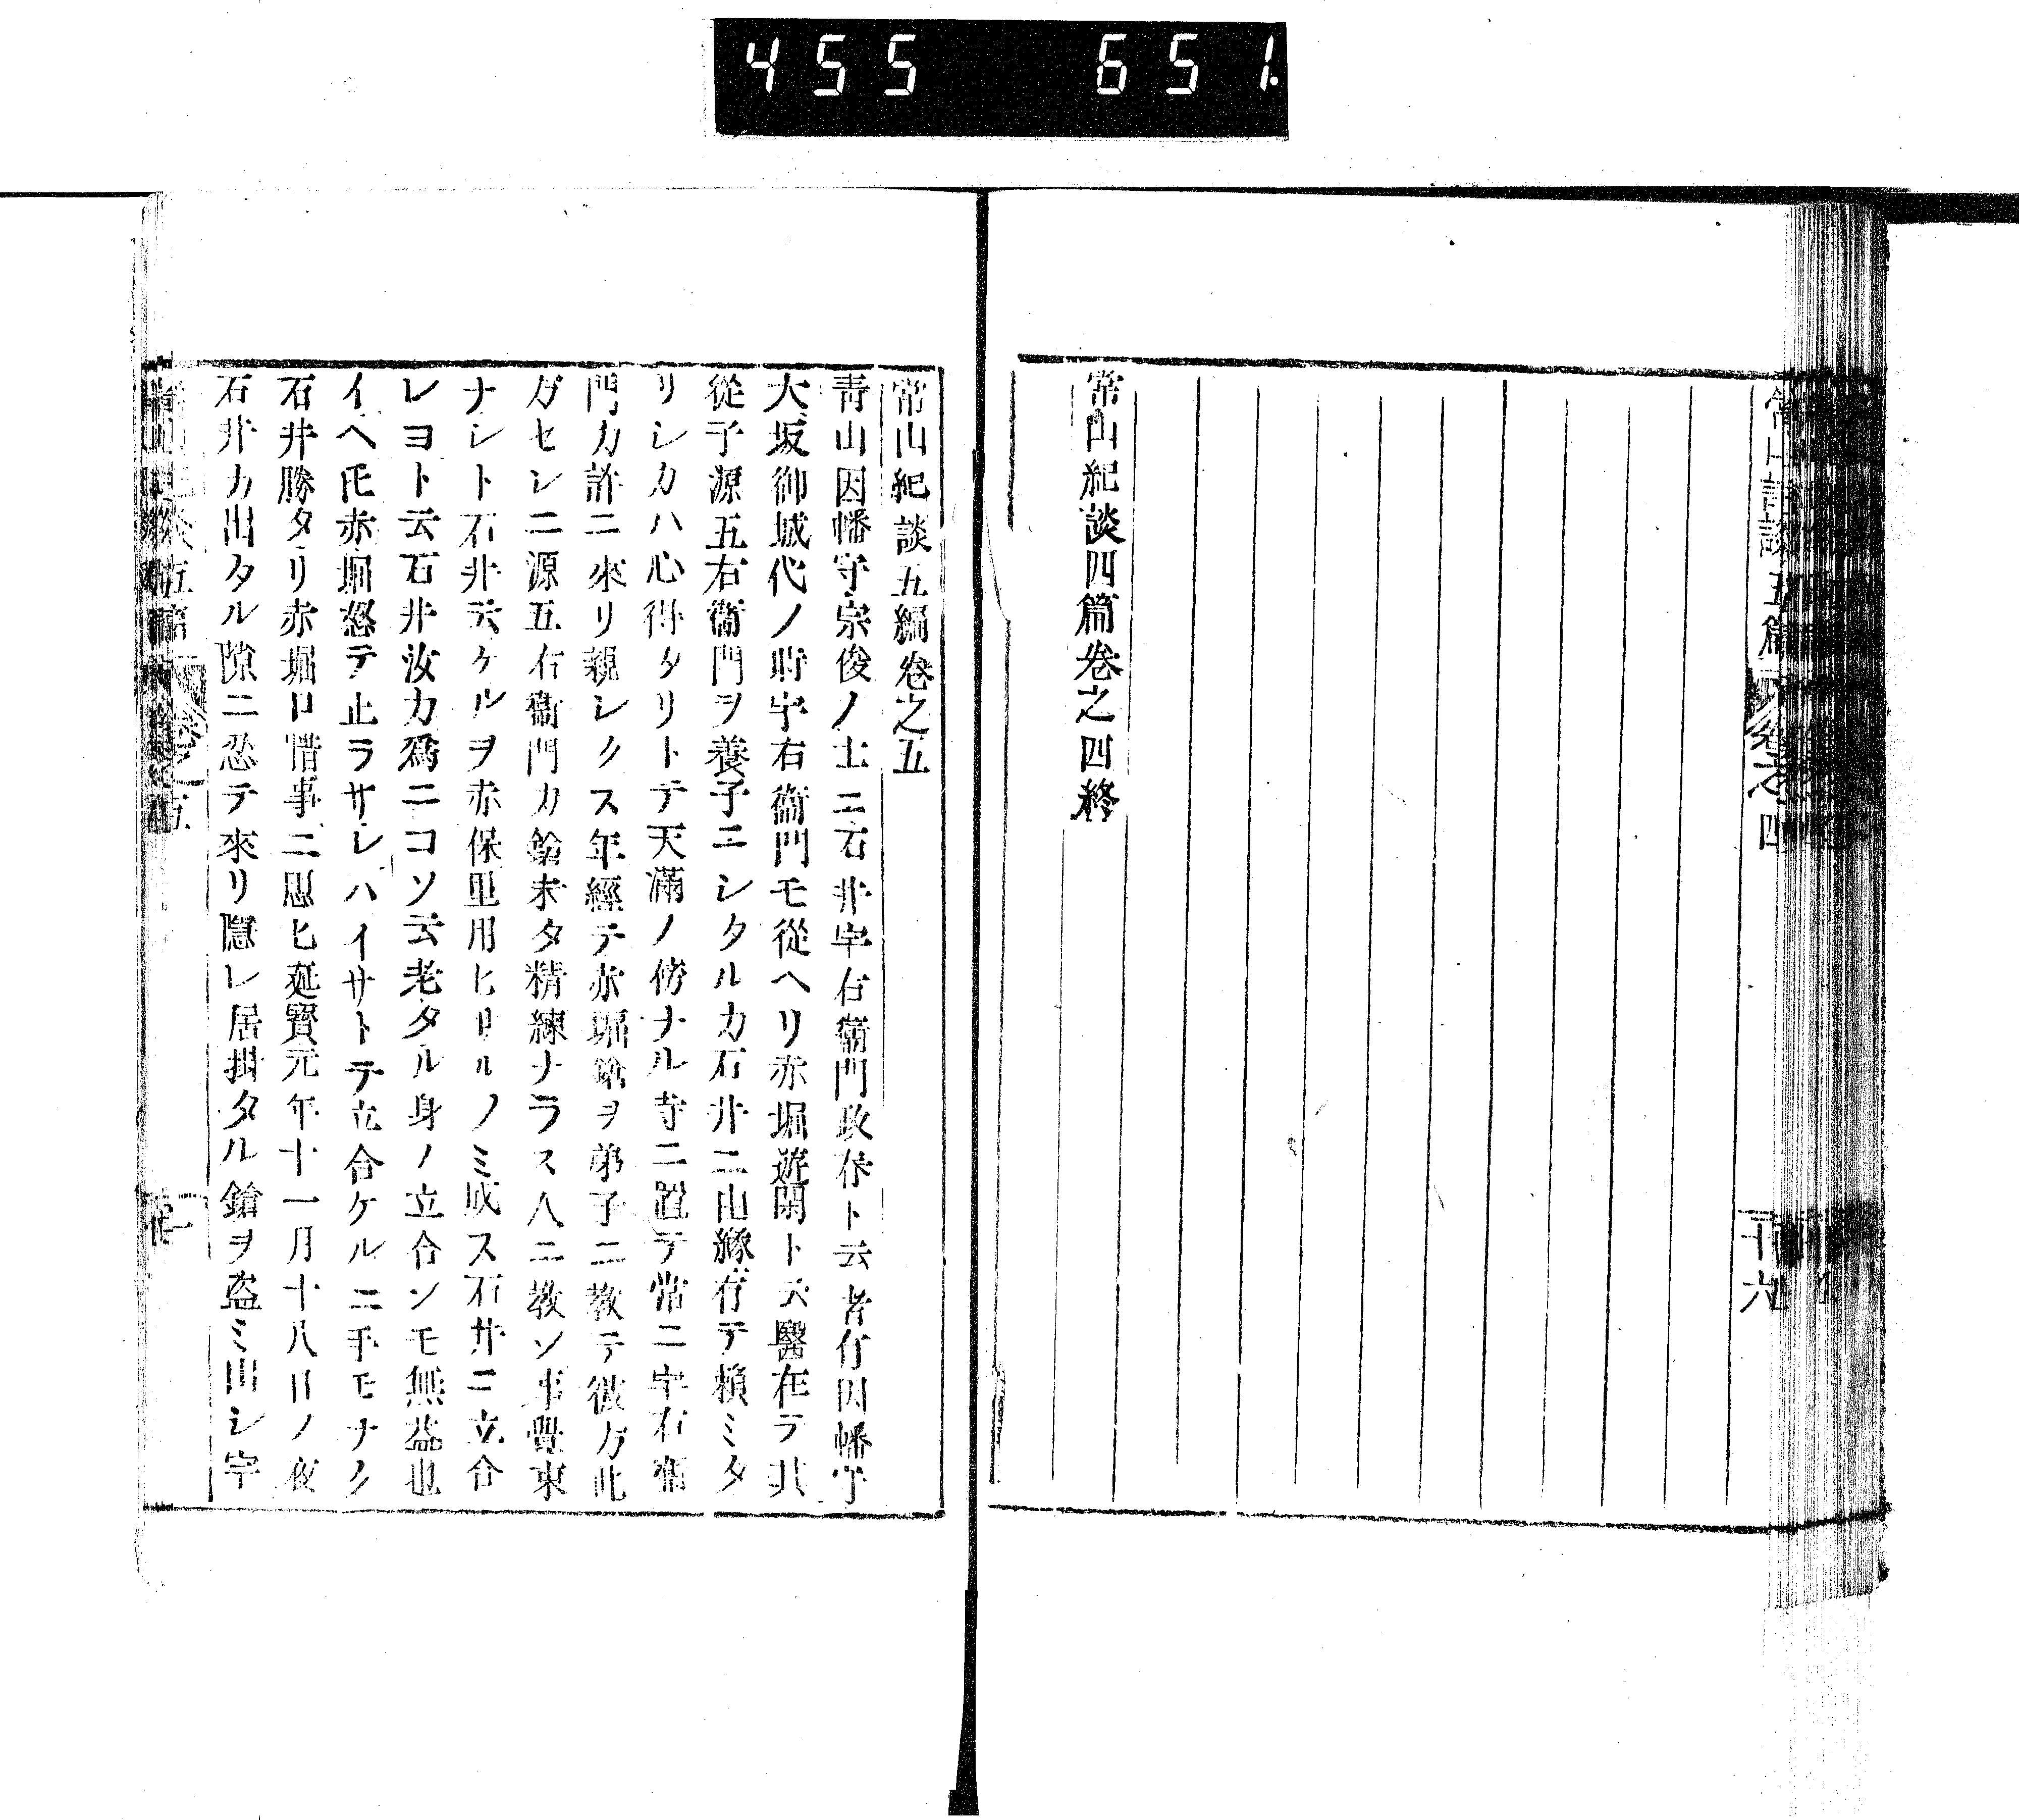 455 651.
常山紀談四篇卷之四
十六
常山紀談四篇卷之四終
常山紀談五編卷之五
靑山因幡守宗俊ノ士ニ石井宇右衞門政春ト云者有因幡守
大坂御城代ノ時宇右衞門モ從ヘリ赤堀遊閑ト云醫在テ其
從子源五右衞門ヲ養子ニシタルカ石井ニ由緣有テ賴ミタ
リシカハ心得タリトテ天滿ノ傍ナル寺ニ置テ常ニ宇右衞
門カ許ニ來リ親シクス年經テ赤堀鎗ヲ弟子ニ敎テ彼方此
ガセシニ源五右衞門カ鎗未タ精練ナラス人ニ敎ソ事覺束
ナシト石井云ケルヲ赤保里用ヒサルノミ或ス石井ニ立合
レヨト云石井汝カ爲ニコソ云老タル身ノ立合ンモ無益也
イヘ𪜈赤堀怒テ止ラサレハイサトテ立合ケルニ手モナク
石井勝タリ赤堀口惜事ニ思ヒ延寶元年十一月十八日ノ夜
石井カ出タル隙ニ忍テ來リ隱レ居掛タル鎗ヲ盜ミ出シ宇